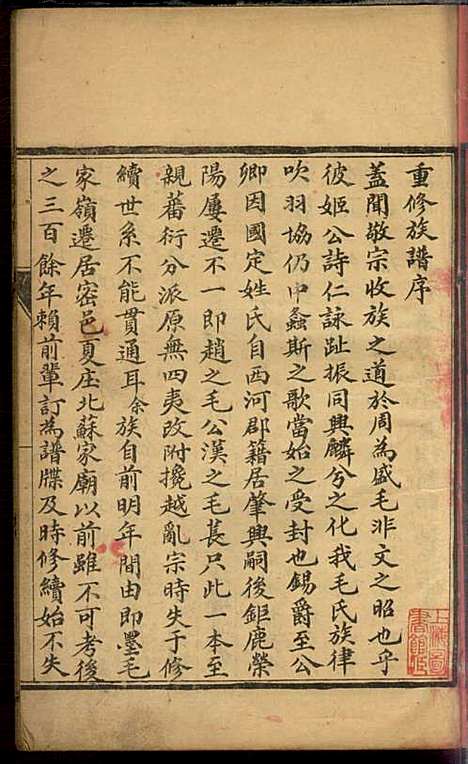 重修族譜序
蓋聞敬宗收族之道於周為盛毛非文之昭也乎
彼姬公詩仁詠趾振同興麟兮之化我毛氏族律
吹羽協仍中螽斯之歌當始之受封也錫爵至公
卿因國定姓氏自西河郡籍居肇興嗣後鉅鹿榮
陽屢遷不一即趙之毛公漢之毛萇只此一本至
親蕃衍分派原無四夷攺附攙越亂宗時失于修
續世系不能貫通耳余族自前明年間由即墨毛
家嶺遷居密邑夏庄北蘇家廟以前雖不可考後
之三百餘年賴前軰訂為譜牒及時修續始不失
上海圖
書館藏